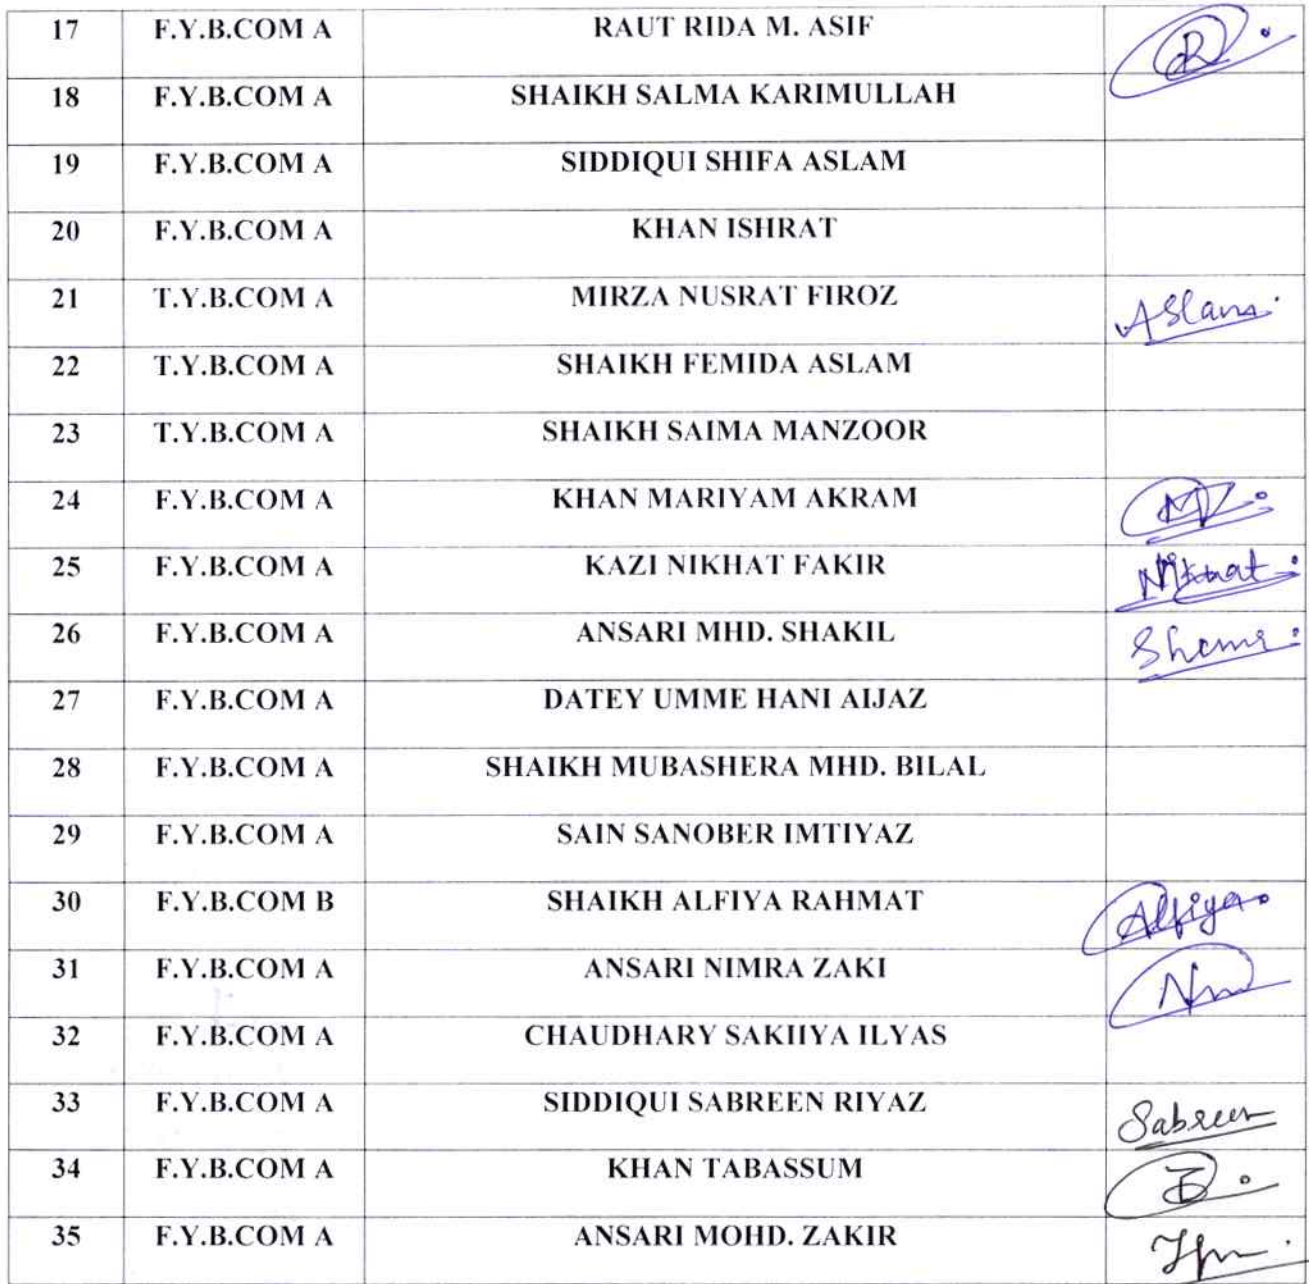 17 F.Y.B.COM A RAUT RIDA M. ASIF
18 F.Y.B.COM A SHAIKH SALMA KARIMULLAH
19 F.Y.B.COM A SIDDIQUI SHIFA ASLAM
20 F.Y.B.COM A KHAN ISHRAT
21 T.Y.B.COM A MIRZA NUSRAT FIROZ Aslam
22 T.Y.B.COM A SHAIKH FEMIDA ASLAM
23 T.Y.B.COM A SHAIKH SAIMA MANZOOR
24 F.Y.B.COM A KHAN MARIYAM AKRAM
25 F.Y.B.COM A KAZI NIKHAT FAKIR Nikhat
26 F.Y.B.COM A ANSARI MHD. SHAKIL
27 F.Y.B.COM A DATEY UMME HANI AIJAZ
28 F.Y.B.COM A SHAIKH MUBASHERA MHD. BILAL
29 F.Y.B.COM A SAIN SANOBER IMTIYAZ
30 F.Y.B.COM B SHAIKH ALFIYA RAHMAT Alfiya
31 F.Y.B.COM A ANSARI NIMRA ZAKI
32 F.Y.B.COM A CHAUDHARY SAKIIYA ILYAS
33 F.Y.B.COM A SIDDIQUI SABREEN RIYAZ Sabreen
34 F.Y.B.COM A KHAN TABASSUM
35 F.Y.B.COM A ANSARI MOHD. ZAKIR